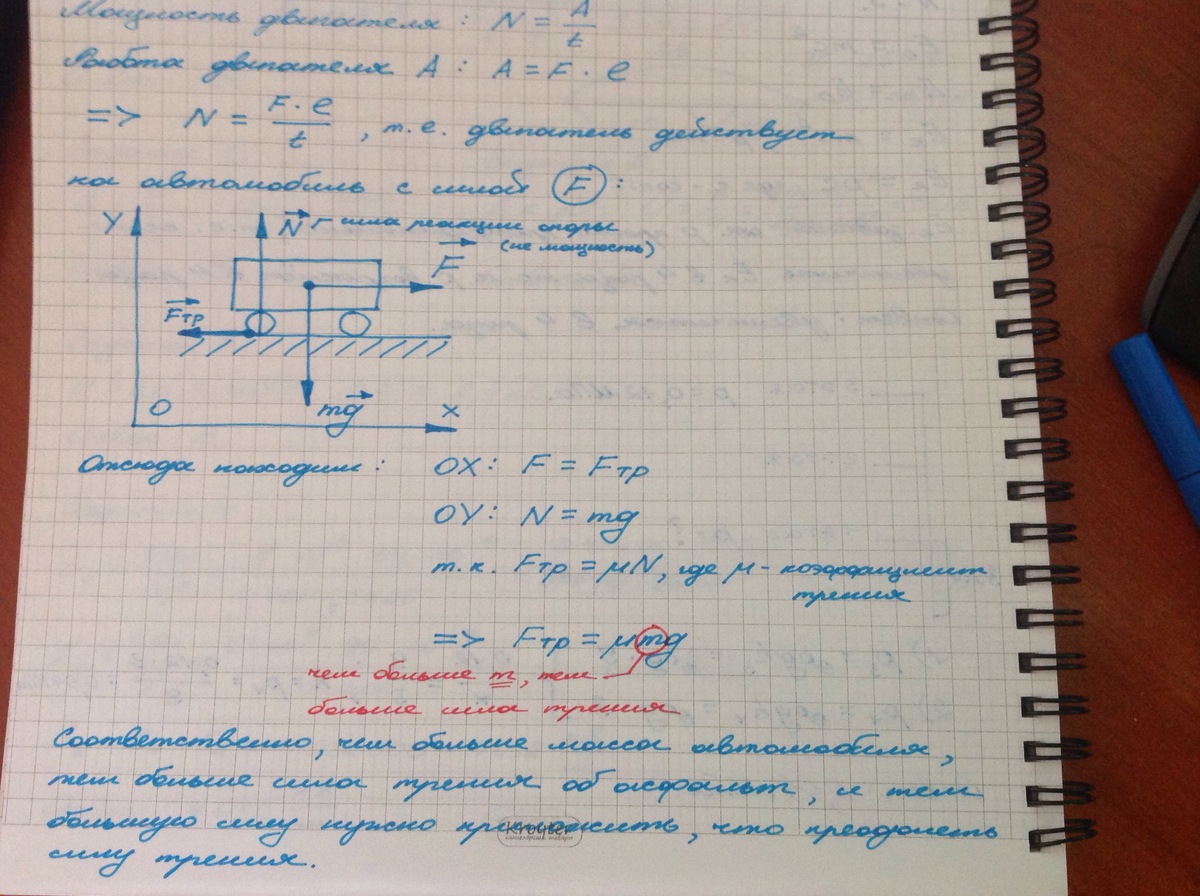 Мощность двигателя : N = A/t
Работа двигателя A : A = F · l
=> N = F · l / t , т. е. двигатель действует
на автомобиль с силой F :
Y N - сила реакции опоры
(не мощность)
F
Fтр
O mg x
Отсюда находим : OX : F = Fтр
OY : N = mg
т.к. Fтр = μN, где μ - коэффициент
трения
=> Fтр = μmg
чем больше m, тем
больше сила трения
Соответственно, чем больше масса автомобиля,
тем больше сила трения об асфальт, и тем
большую силу нужно приложить, что преодолеть
силу трения.
Kroyter